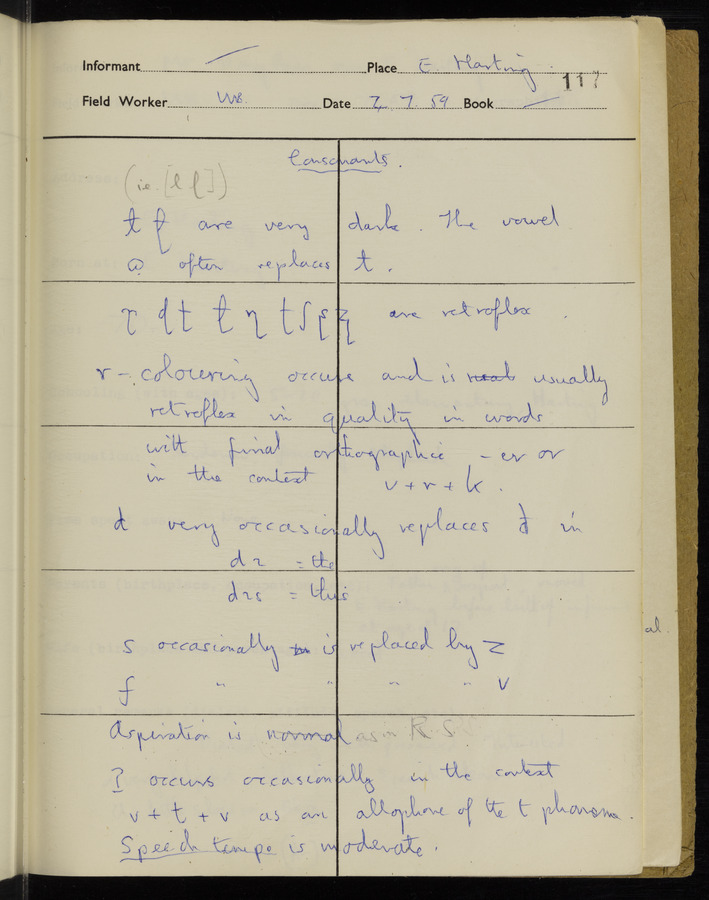 Informant Place E. Harting.
117
Field Worker WB. Date 7. 7. 59 Book
Consonants.
(ie. [ɫ ɭ])
ɫ ɭ are very dark. The vowel
often replaces ɫ.
are retroflex.
r-colouring occurs and is usually
retroflex in quality in words
with final orthographic -er or
in the context v + r + k.
d very occasionally replaces ð in
dɪ = the
dɪs = this
s occasionally is replaced by z
f " " " " v
Aspiration is normal as in R.S.
ʔ occurs occasionally in the context
v + t + v as an allophone of the t phoneme.
Speech tempo is moderate.
al.